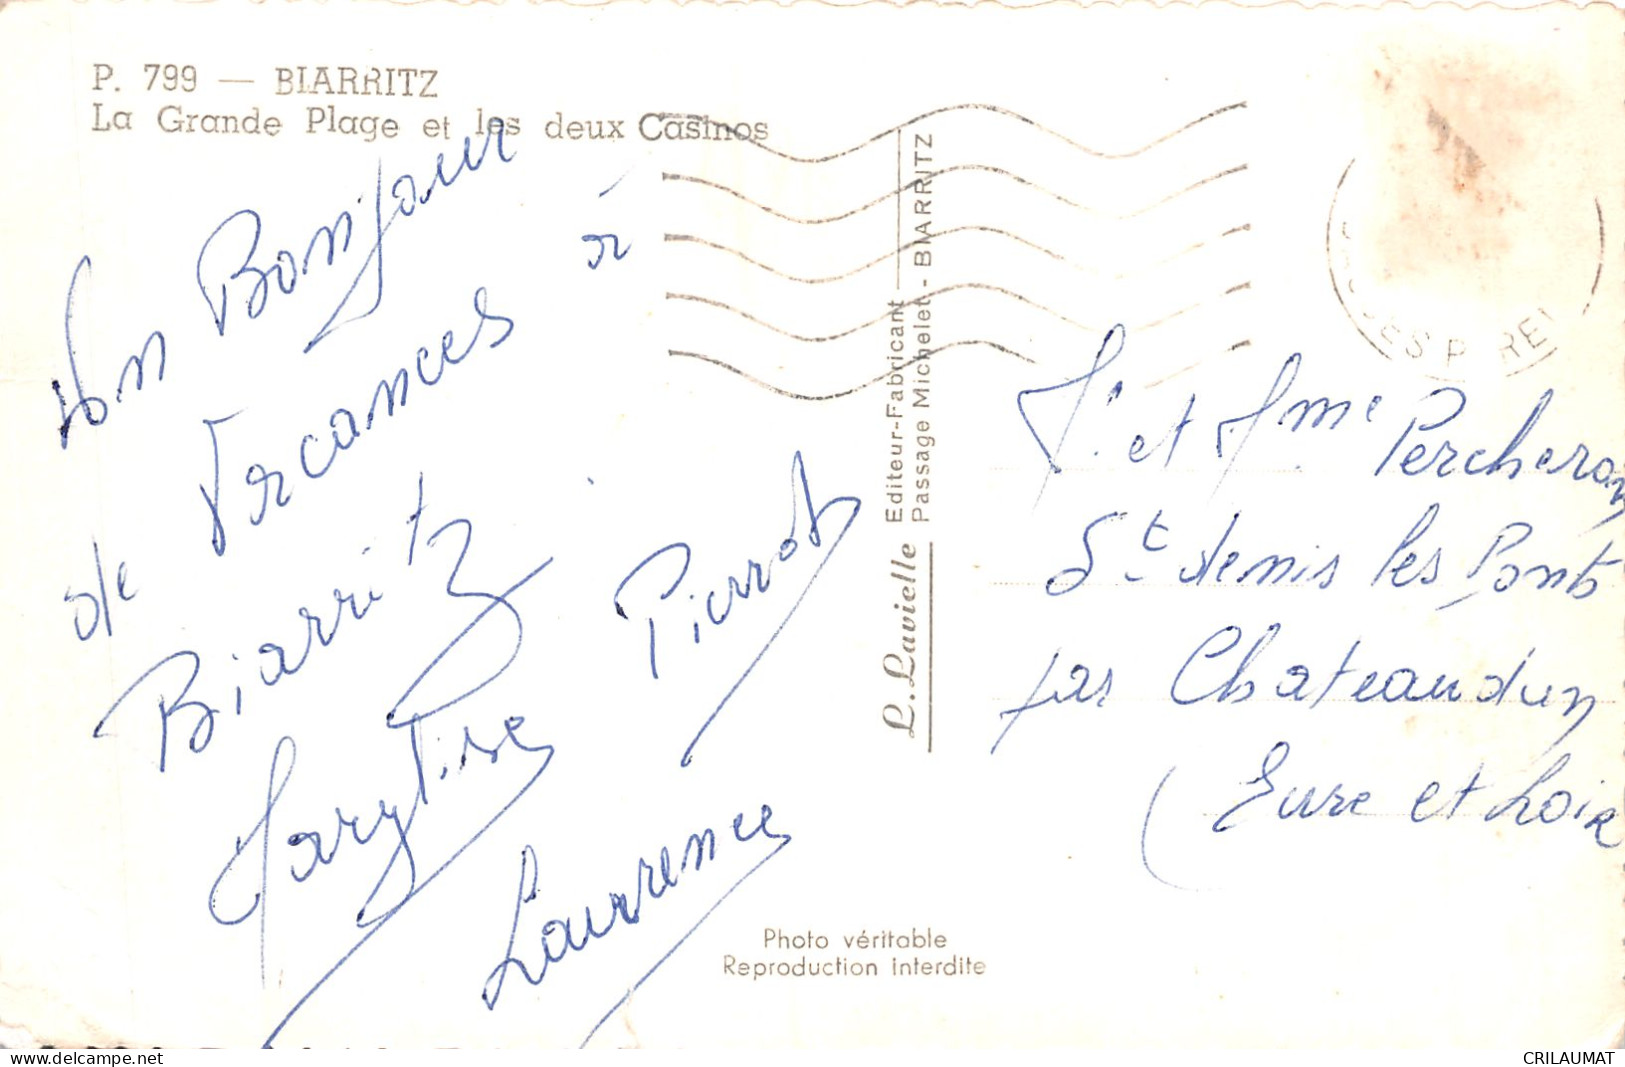 P. 799 — BIARRITZ
La Grande Plage et les deux Casinos
Un Bonjour
de Vacances à
Biarritz
Pierrot
Marylise
Laurence
L. Lavielle Editeur-Fabricant
Passage Michelet - BIARRITZ
M. et Mme Percheron
St denis les Ponts
par Chateaudun
(Eure et Loir
Photo véritable
Reproduction interdite
delcampe.net
CRILAUMAT